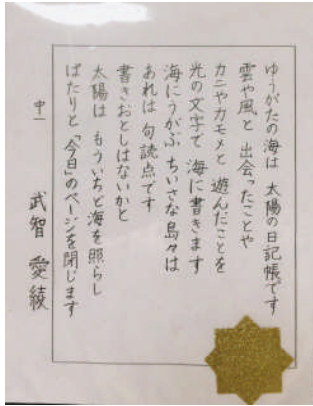 ゆうがたの海は 太陽の日記帳です
雲や風と 出会ったことや
カニやカモメと 遊んだことを
光の文字で 海に書きます
海にうかぶ ちいさな島々は
あれは 句読点です
書きおとしはないかと
太陽は もういちど海を照らし
ぱたりと 「今日」のページを閉じます
中一 武智 愛綾